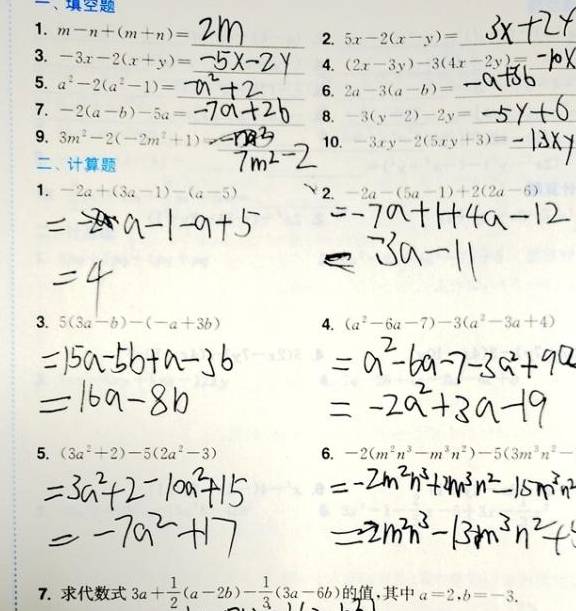 一、填空题
1. m-n+(m+n)= 2m
2. 5x-2(x-y)= 3x+2y
3. -3x-2(x+y)= -5x-2y
4. (2x-3y)-3(4x-2y)= -10x
5. a²-2(a²-1)= -a²+2
6. 2a-3(a-b)= -a+3b
7. -2(a-b)-5a= -7a+2b
8. -3(y-2)-2y= -5y+6
9. 3m²-2(-2m²+1)= 7m²-2
10. -3xy-2(5xy+3)= -13xy
二、计算题
1. -2a+(3a-1)-(a-5)
= a-1-a+5
= 4
2. -2a-(5a-1)+2(2a-6)
=-7a+1+4a-12
= -3a-11
3. 5(3a-b)-(-a+3b)
=15a-5b+a-3b
=16a-8b
4. (a²-6a-7)-3(a²-3a+4)
= a²-6a-7-3a²+9a
= -2a²+3a-19
5. (3a²+2)-5(2a²-3)
=3a²+2-10a²+15
= -7a²+17
6. -2(m²n³-m³n²)-5(3m³n²-
=-2m²n³+2m³n²-15m³n²
=-2m²n³-13m³n²+
7. 求代数式 3a+1/2(a-2b)-1/3(3a-6b)的值,其中 a=2,b=-3.